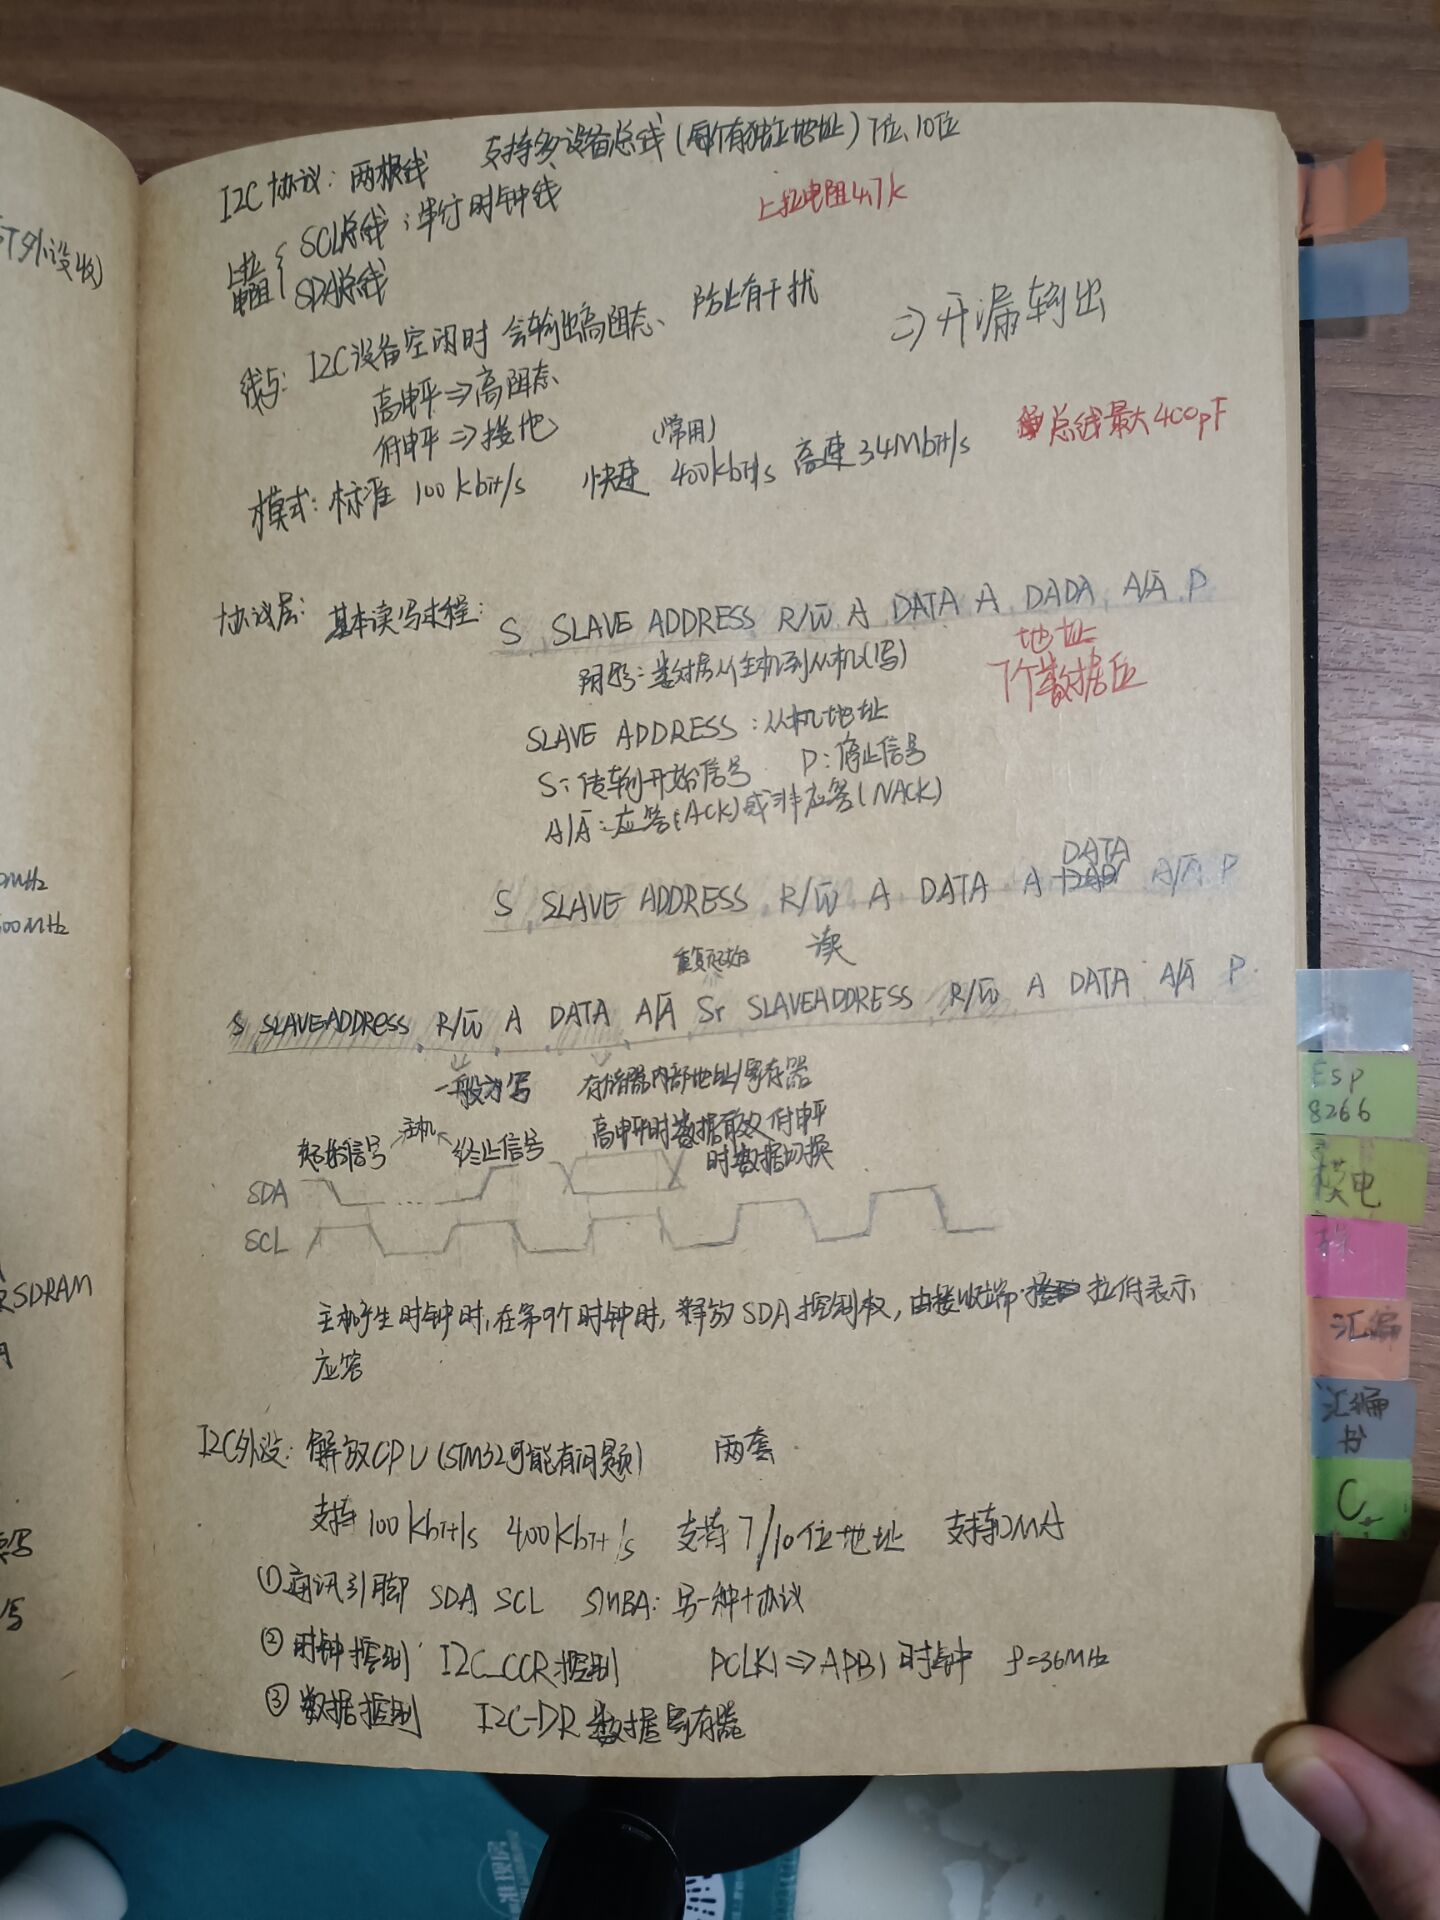 I2C协议: 两根线 支持多设备总线(每个有独立地址) 7位、10位
上拉电阻4.7k
上拉电阻 { SCL总线: 串行时钟线
SDA总线
线与: I2C设备空闲时 会输出高阻态、 防止有干扰 => 开漏输出
高电平 => 高阻态
低电平 => 接地
模式: 标准 100kbit/s 快速 (常用) 400kbit/s 高速 34Mbit/s 总线最大400pF
协议层: 基本读写过程: S SLAVE ADDRESS R/W̅ A DATA A DADA A/A̅ P
地址
7个数据位
阴影: 数据从主机到从机(写)
SLAVE ADDRESS: 从机地址
S: 传输开始信号 P: 停止信号
A/A̅: 应答(ACK)或非应答(NACK)
DATA
S SLAVE ADDRESS R/W̅ A DATA A A/A̅ P
重复起始 读
S SLAVEADDRESS R/W̅ A DATA A/A̅ Sr SLAVEADDRESS R/W̅ A DATA A/A̅ P
一般为写 存储器内部地址/寄存器
起始信号 主机 终止信号 高电平时数据有效 低电平
时数据切换
SDA
SCL
主机产生时钟时, 在第9个时钟时, 释放SDA控制权, 由接收端 拉低表示
应答
I2C外设: 解放CPU (STM32可能有问题) 两套
支持100Kbit/s 400Kbit/s 支持7/10位地址 支持DMA
①通讯引脚 SDA SCL SMBA: 另一种协议
②时钟控制 I2C_CCR控制 PCLK1 => APB1时钟 f=36MHz
③数据控制 I2C-DR 数据寄存器
ST外设收)
00MHz
SDRAM
写
写
Esp
8266
模电
汇编
汇编
书
C+